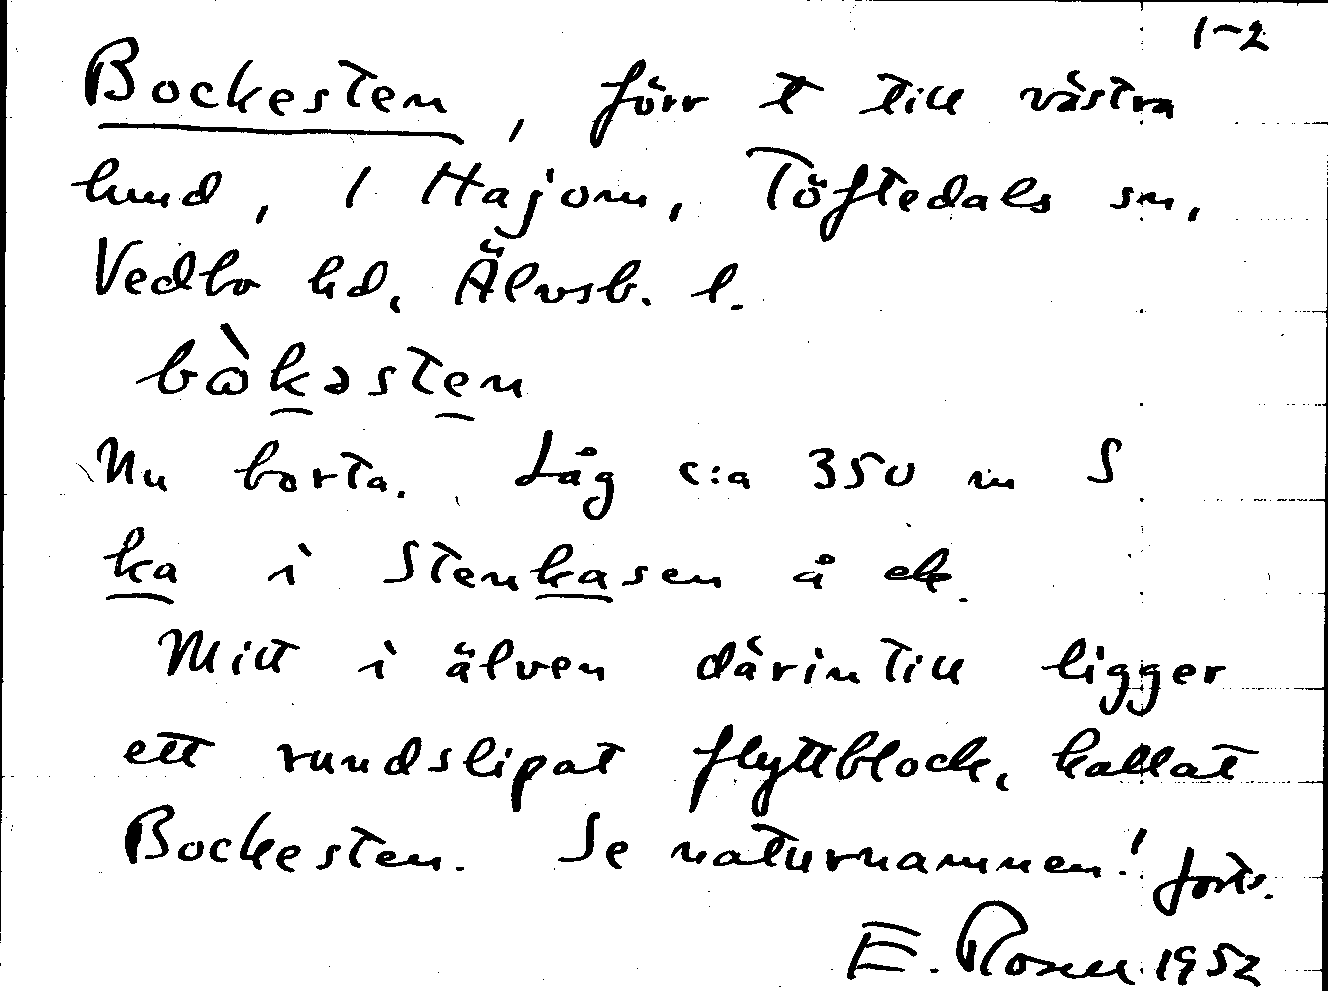 1-2
Bockesten, förr t till västra
lund, 1 Hajom, Töftedals sn,
Vedbo hd, Älvsb. l.
bàkəsten
Nu borta. Låg c:a 350 m S
ka i Stenkasen å ek.
Mitt i älven därintill ligger
ett rundslipat flyttblock, kallat
Bockesten. Se naturnamnen! forts.
E. Rosell 1952